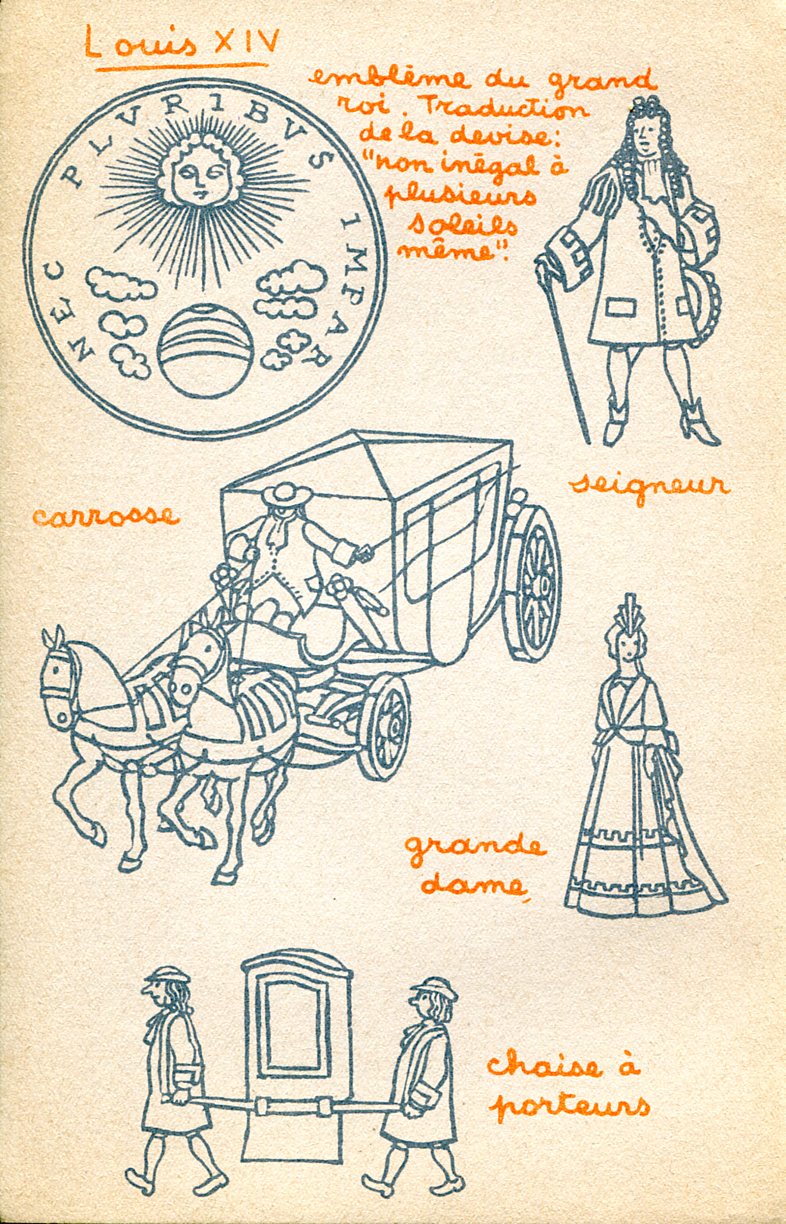 Louis XIV
NEC PLVRIBVS IMPAR
emblême du grand
roi. Traduction
de la devise:
"non inégal à
plusieurs
soleils
même".
seigneur
carrosse
grande
dame,
chaise à
porteurs